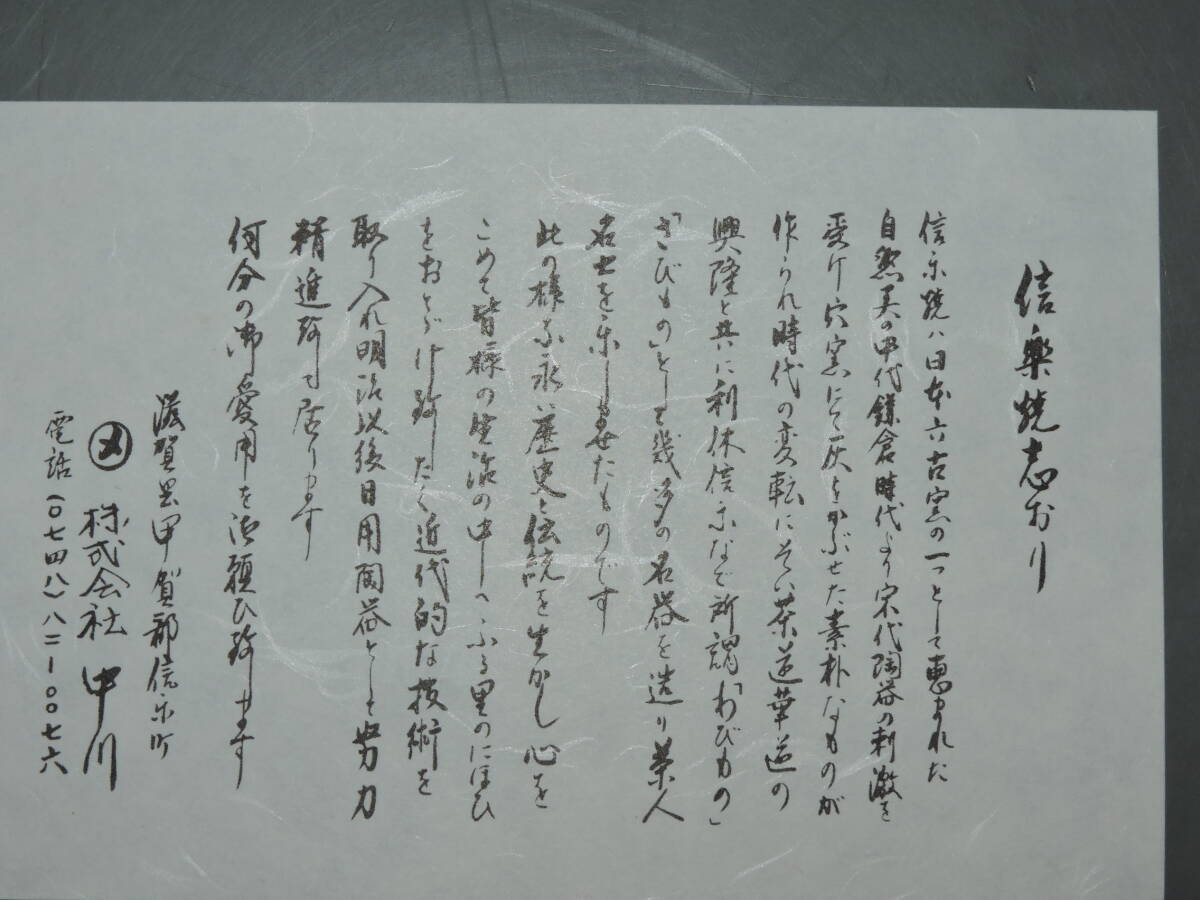 信楽焼志おり
信楽焼ハ日本六古窯の一つとして恵まれた
自然美の中代鎌倉時代より宋代陶器の刺激を
受け穴窯にて灰をかぶせた素朴なものが
作られ時代の変転にそい茶道華道の
興隆と共に利休信楽など所謂「わびもの」
「さびもの」として幾多の名器を造り茶人
名士を楽しませたものです
此の様な永い歴史と伝統を生かし心を
こめて皆様の生活の中へふる里のにほひ
をおとゞけ致したく近代的な技術を
取り入れ明治以後日用陶器としと努力
精進致して居ります
何分の御愛用を御願ひ致します
滋賀県甲賀郡信楽町
株式会社 中川
電話(〇七四八)八二-〇〇七六